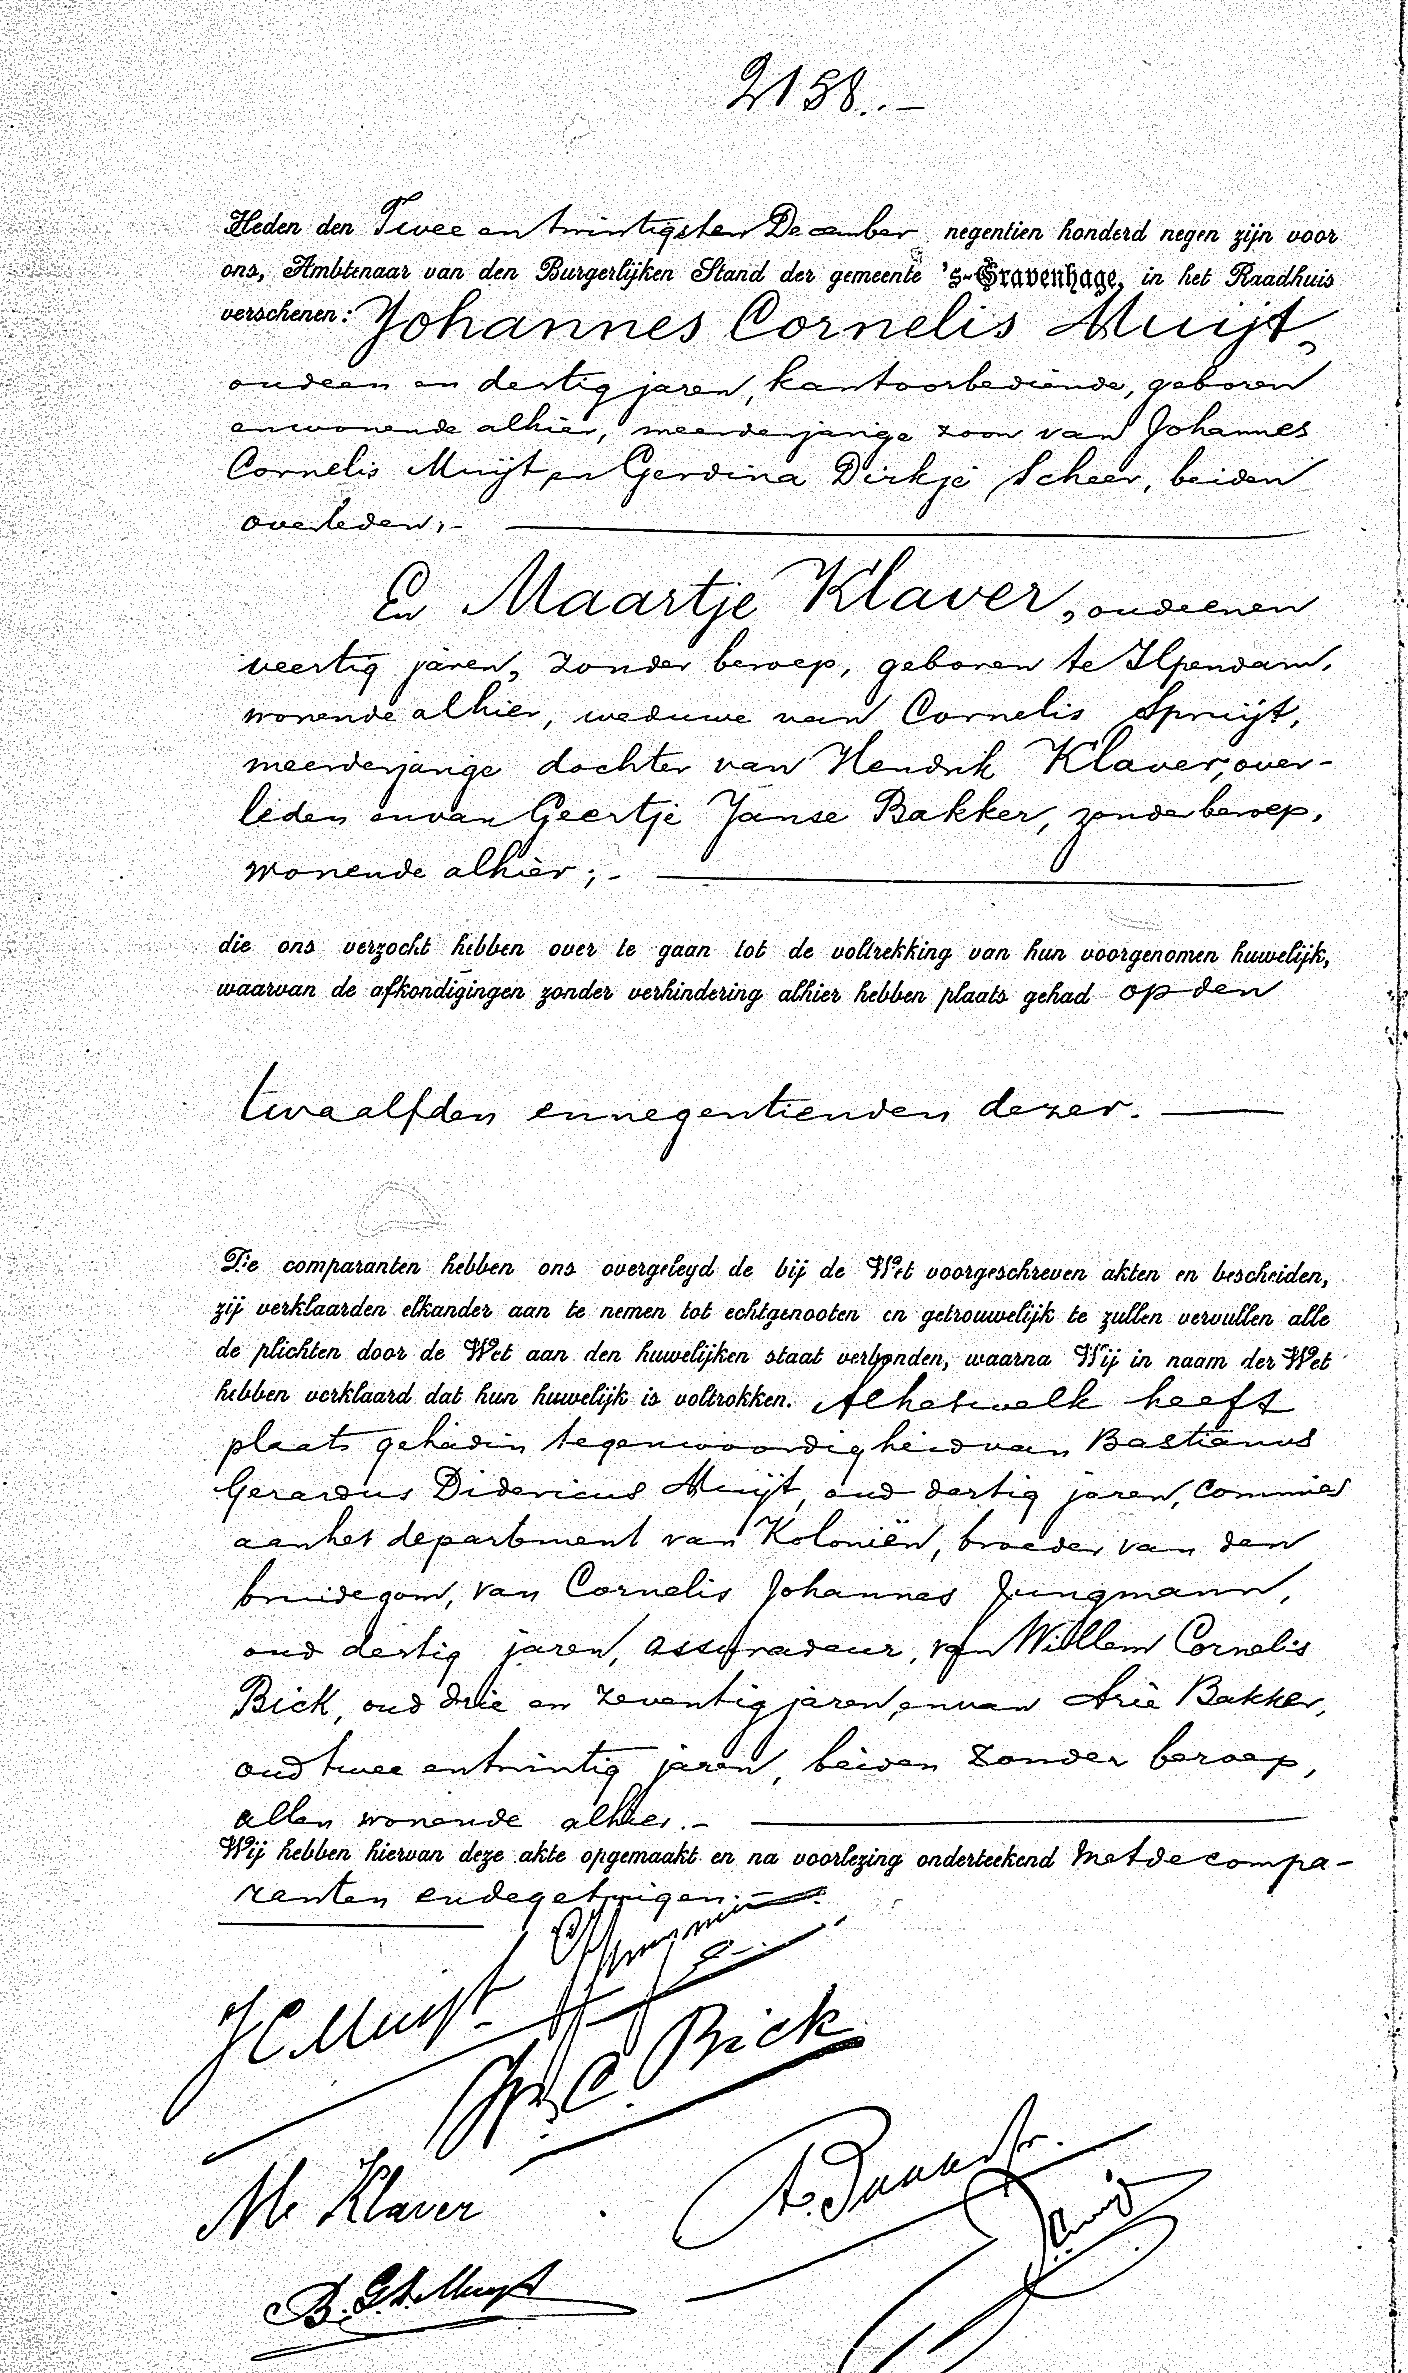 2158.-
Heden den Twee en twintigsten December negentien honderd negen zijn voor
ons, Ambtenaar van den Burgerlijken Stand der gemeente 's-Gravenhage, in het Raadhuis
verschenen: Johannes Cornelis Muijt,
oud een en dertig jaren, kantoorbediende, geboren
en wonende alhier, meerderjarige zoon van Johannes
Cornelis Muijt en Gerdina Dirkje Scheer, beiden
overleden;-
En Maartje Klaver, oud eenen
veertig jaren, zonder beroep, geboren te Ilpendam,
wonende alhier, weduwe van Cornelis Spruijt,
meerderjarige dochter van Hendrik Klaver, over-
leden en van Geertje Janse Bakker, zonder beroep,
wonende alhier;-
die ons verzocht hebben over te gaan tot de voltrekking van hun voorgenomen huwelijk,
waarvan de afkondigingen zonder verhindering alhier hebben plaats gehad op den
twaalfden en negentienden dezer.
De comparanten hebben ons overgelegd de bij de Wet voorgeschreven akten en bescheiden,
zij verklaarden elkander aan te nemen tot echtgenooten en getrouwelijk te zullen vervullen alle
de plichten door de Wet aan den huwelijken staat verbonden, waarna Wij in naam der Wet
hebben verklaard dat hun huwelijk is voltrokken. Alhetwelk heeft
plaats gehad in tegenwoordigheid van Bastianus
Gerardus Didericus Muijt, oud dertig jaren, commies
aan het departement van Koloniën, broeder van den
bruidegom, van Cornelis Johannes Jungmann,
oud dertig jaren, assuradeur, van Willem Cornelis
Bick, oud drie en zeventig jaren, en van Arie Bakker,
oud twee en twintig jaren, beiden zonder beroep,
allen wonende alhier.-
Wij hebben hiervan deze akte opgemaakt en na voorlezing onderteekend met de compa-
ranten en de getuigen.-
J C Muijt
C. Bick
M Klaver
B. G. D. Muijt